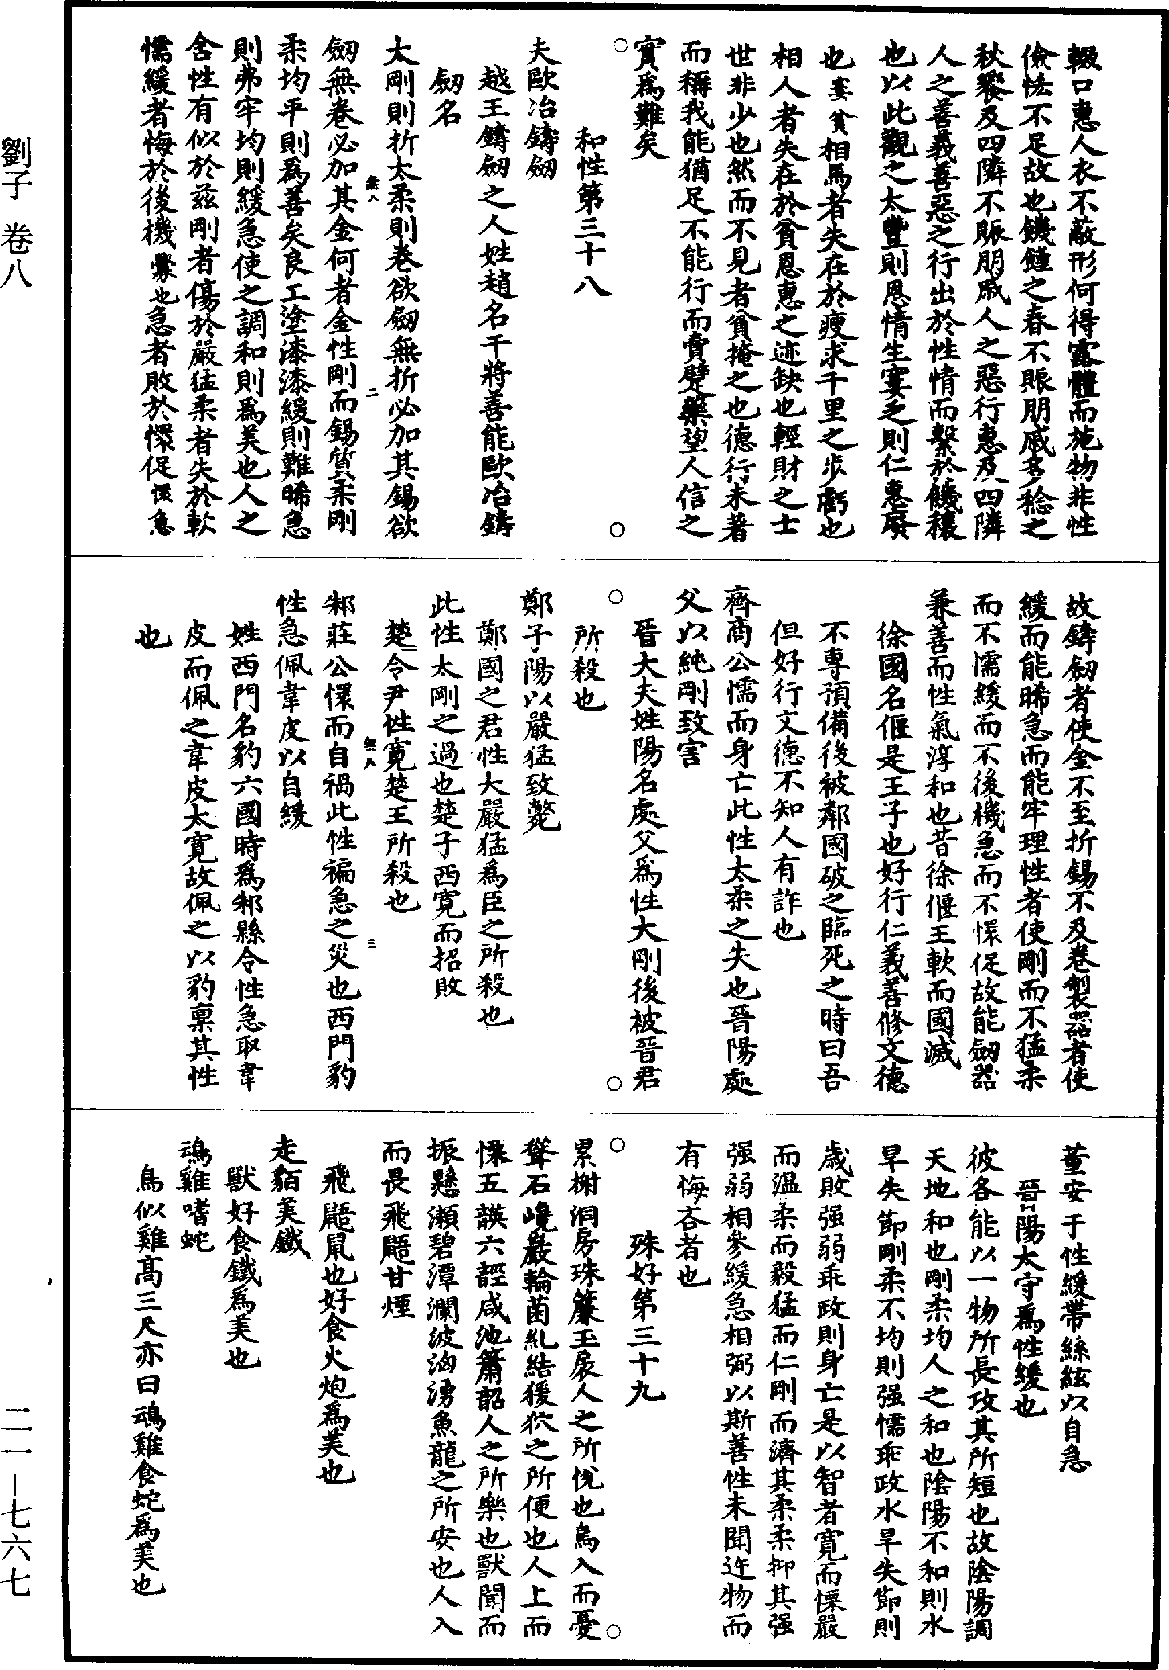 劉子 卷八
輟口惠人衣不蔽形何得露體而施物非性
儉恡不足故也饑饉之春不賑朋戚多稔之
秋饗及四隣不賑朋戚人之惡行惠及四隣
人之善義善惡之行出於性情而繫於饑穰
也以此觀之太豐則恩情生窶乏則仁惠廢
也窶貧相馬者失在於瘦求千里之步虧也
相人者失在於貧恩惠之迹缺也輕財之士
世非少也然而不見者貧掩之也德行未著
而稱我能猶足不能行而賣躄藥望人信之
實爲難矣
和性第三十八
夫歐冶鑄劒
越王鑄劒之人姓趙名干將善能歐冶鑄
劒名
太剛則折太柔則卷欲劒無折必加其錫欲
劒無卷必加其金何者金性剛而錫質柔剛
柔均平則爲善矣良工塗漆漆緩則難晞急
則弗牢均則緩急使之調和則爲美也人之
含性有似於茲剛者傷於嚴猛柔者失於軟
懦緩者悔於後機釁也急者敗於懁促懁急
無八 二
故鑄劒者使金不至折錫不及卷製器者使
緩而能晞急而能牢理性者使剛而不猛柔
而不懦緩而不後機急而不懁促故能劒器
兼善而性氣淳和也昔徐偃王軟而國滅
徐國名偃是王子也好行仁義善修文德
不專預備後被鄰國破之臨死之時曰吾
但好行文德不知人有詐也
齊商公懦而身亡此性太柔之失也晉陽處
父以純剛致害
晉大夫姓陽名處父爲性大剛後被晉君
所殺也
鄭子陽以嚴猛致斃
鄭國之君性大嚴猛爲臣之所殺也
此性太剛之過也楚子西寛而招敗
楚令尹性寛楚王所殺也
邾莊公懁而自禍此性褊急之災也西門豹
性急佩韋皮以自緩
姓西門名豹六國時爲邾縣令性急取韋
皮而佩之韋皮太寛故佩之以豹稟其性
也
無八 三
董安于性緩帶絲絃以自急
晉陽太守爲性緩也
彼各能以一物所長攻其所短也故陰陽調
天地和也剛柔均人之和也陰陽不和則水
旱失節剛柔不均則强懦乖政水旱失節則
歲敗强弱乖政則身亡是以智者寛而慄嚴
而溫柔而毅猛而仁剛而濟其柔柔抑其强
强弱相參緩急相弼以斯善性未聞迕物而
有悔吝者也
殊好第三十九
累榭洞房珠簾玉扆人之所悅也鳥入而憂
聳石巉巖輪菌糺結猨狖之所便也人上而
慄五韺六䪫咸池簫韶人之所樂也獸聞而
振懸瀨碧潭瀾波洶湧魚龍之所安也人入
而畏飛鼯甘煙
飛鼯鼠也好食火炮爲美也
走貊美鐵
獸好食鐵爲美也
鴆雞嗜蛇
鳥似雞高三尺亦曰鴆雞食蛇爲美也
二一—七六七